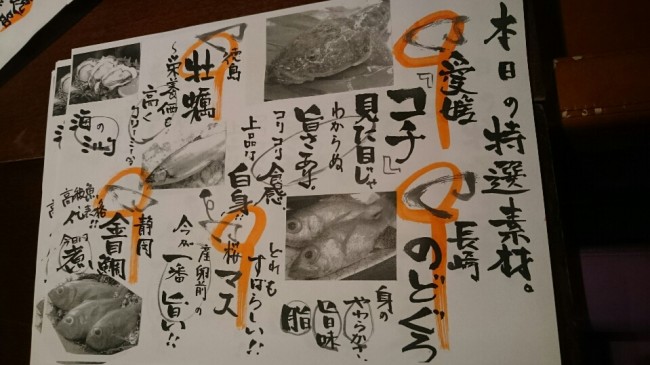 本日の特選素材。
愛媛
『コチ』
見た目じゃ
わからぬ
旨さあり
コリコリ食感
上品な白身!!
長崎
のどぐろ
身の
やわらかさ
旨味
脂
どれも
すばらしい!!
徳島
牡蠣
栄養価も
高く
海の
桜マス
産卵前の
今が一番旨い!!
静岡
金目鯛
高級魚
煮